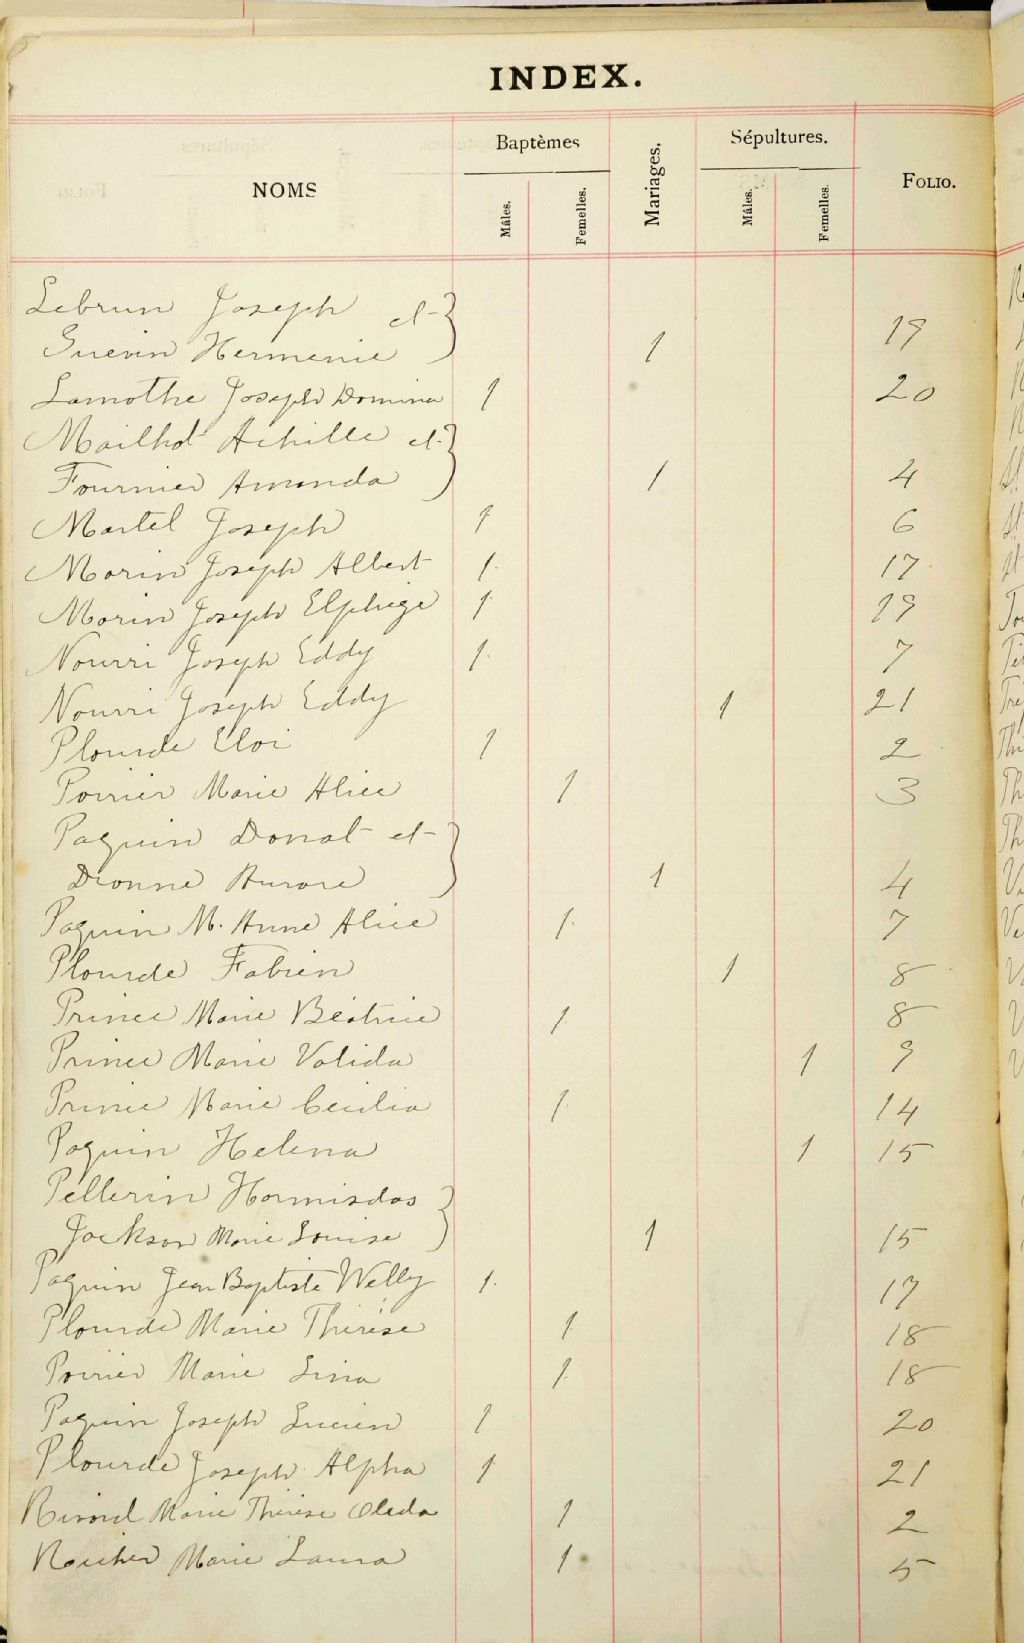 INDEX.
NOMS Baptèmes Mariages. Sépultures. FOLIO.
Mâles. Femelles. Mâles. Femelles.
Lebrun Joseph et
Guerin Hermenie 1 19
Lamothe Joseph Domina 1 20
Mailhot Achille et
Fournier Amanda 1 4
Martel Joseph 1 6
Morin Joseph Albert 1 17
Morin Joseph Elphège 1 19
Nourri Joseph Eddy 1 7
Nourri Joseph Eddy 1 21
Plourde Eloi 1 2
Poirier Marie Alice 1 3
Paquin Donat et
Dionne Aurore 1 4
Paquin M. Anne Alice 1 7
Plourde Fabien 1 8
Prince Marie Béatrice 1 8
Prince Marie Valida 1 9
Prince Marie Cecilia 1 14
Paquin Helena 1 15
Pellerin Hormisdas
Jackson Marie Louise 1 15
Paquin Jean Baptiste Welly 1 17
Plourde Marie Thérèse 1 18
Poirier Marie Lina 1 18
Paquin Joseph Lucien 1 20
Plourde Joseph Alpha 1 21
Rivard Marie Thérèse Oleda 1 2
Marie Laura 1 5